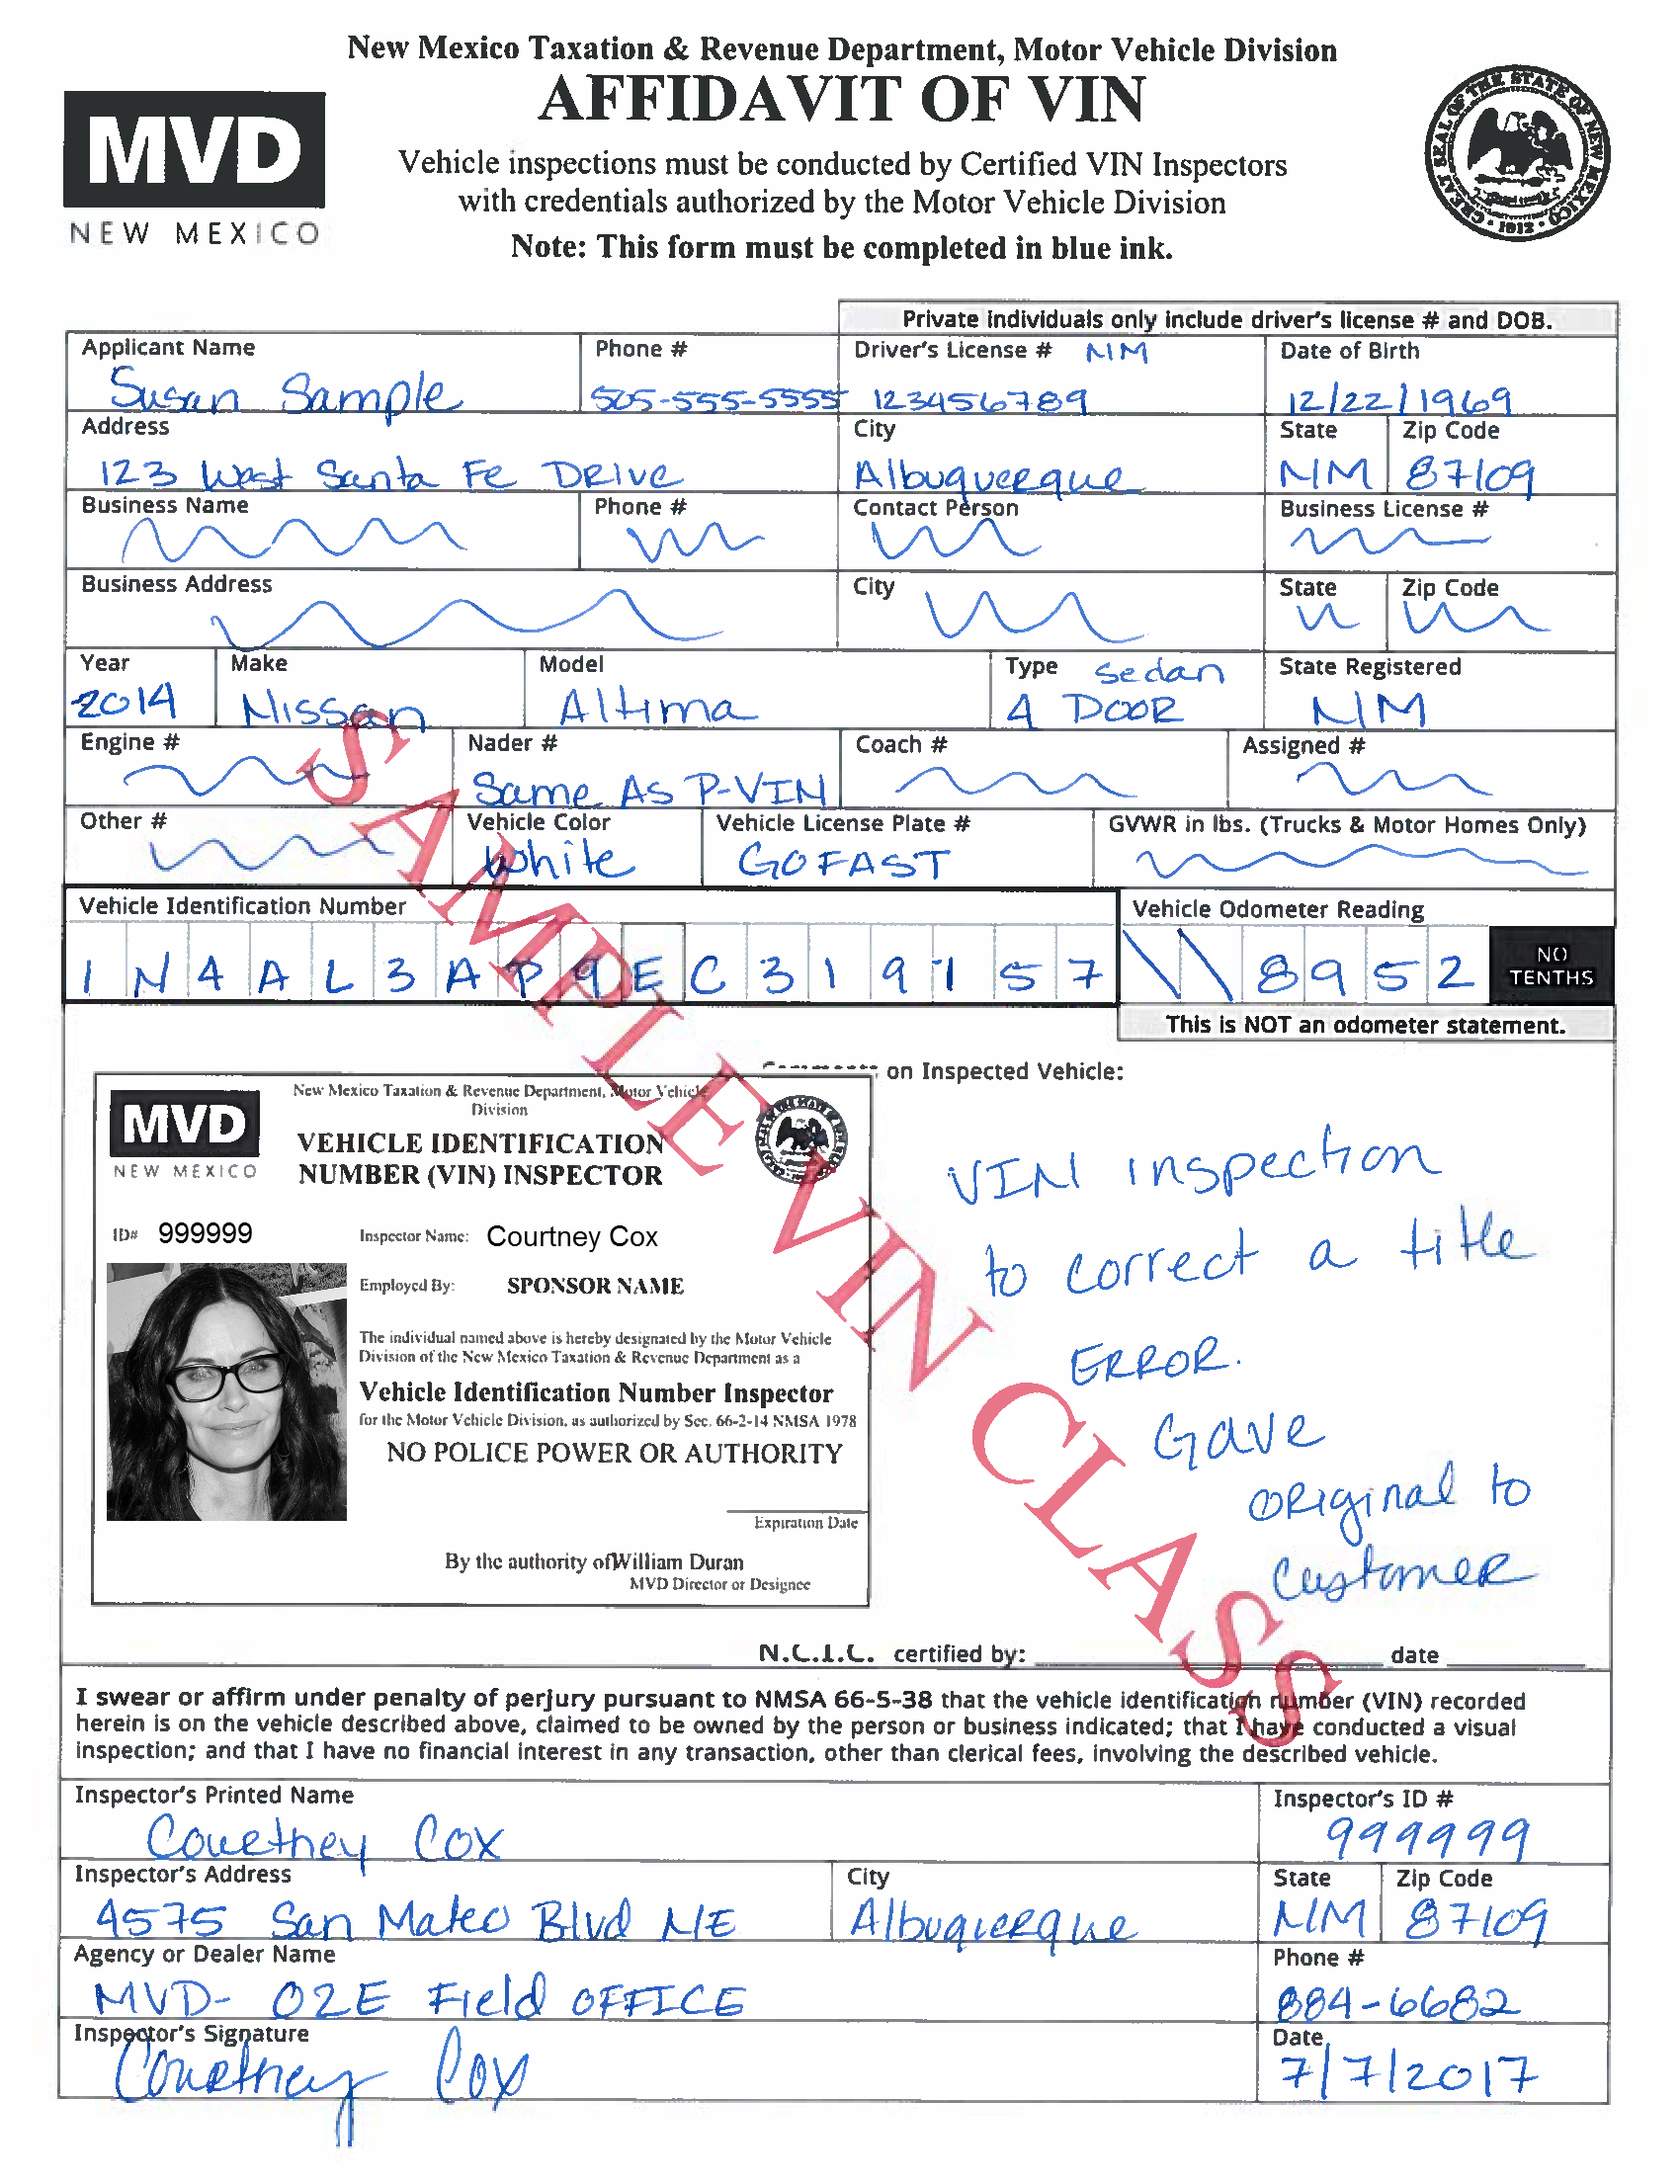 New Mexico Taxation & Revenue Department, Motor Vehicle Division
AFFIDAVIT OF VIN
MVD
NEW MEXICO
Vehicle inspections must be conducted by Certified VIN Inspectors
with credentials authorized by the Motor Vehicle Division
Note: This form must be completed in blue ink.
GREAT SEAL OF THE STATE OF NEW MEXICO
1912
Private individuals only include driver's license # and DOB.
Applicant Name Phone # Driver's License # NM Date of Birth
Susan Sample 505-555-5555 123456789 12/22/1969
Address City State Zip Code
123 West Santa Fe Drive Albuquerque NM 87109
Business Name Phone # Contact Person Business License #
Business Address City State Zip Code
Year Make Model Type Sedan State Registered
2014 Nissan Altima 4 DOOR NM
Engine # Nader # Coach # Assigned #
Same As P-VIN
Other # Vehicle Color Vehicle License Plate # GVWR in lbs. (Trucks & Motor Homes Only)
White GOFAST
Vehicle Identification Number Vehicle Odometer Reading
1 N 4 A L 3 A P 9 E C 3 1 9 1 5 7 \ \ 8 9 5 2 NO TENTHS
This is NOT an odometer statement.
on Inspected Vehicle:
New Mexico Taxation & Revenue Department, Motor Vehicle
Division
MVD
NEW MEXICO
VEHICLE IDENTIFICATION
NUMBER (VIN) INSPECTOR
ID# 999999 Inspector Name: Courtney Cox
Employed By: SPONSOR NAME
The individual named above is hereby designated by the Motor Vehicle
Division of the New Mexico Taxation & Revenue Department as a
Vehicle Identification Number Inspector
for the Motor Vehicle Division, as authorized by Sec. 66-2-14 NMSA 1978
NO POLICE POWER OR AUTHORITY
Expiration Date
By the authority ofWilliam Duran
MVD Director or Designee
VIN inspection
to correct a title
ERROR.
Gave
original to
customer
SAMPLE VIN CLASS
N.C.I.C. certified by: date
I swear or affirm under penalty of perjury pursuant to NMSA 66-5-38 that the vehicle identification number (VIN) recorded
herein is on the vehicle described above, claimed to be owned by the person or business indicated; that I have conducted a visual
inspection; and that I have no financial interest in any transaction, other than clerical fees, involving the described vehicle.
Inspector's Printed Name Inspector's ID #
Courtney Cox 999999
Inspector's Address City State Zip Code
4575 San Mateo Blvd NE Albuquerque NM 87109
Agency or Dealer Name Phone #
MVD- 02E Field OFFICE 884-6682
Inspector's Signature Date
Courtney Cox 7/7/2017